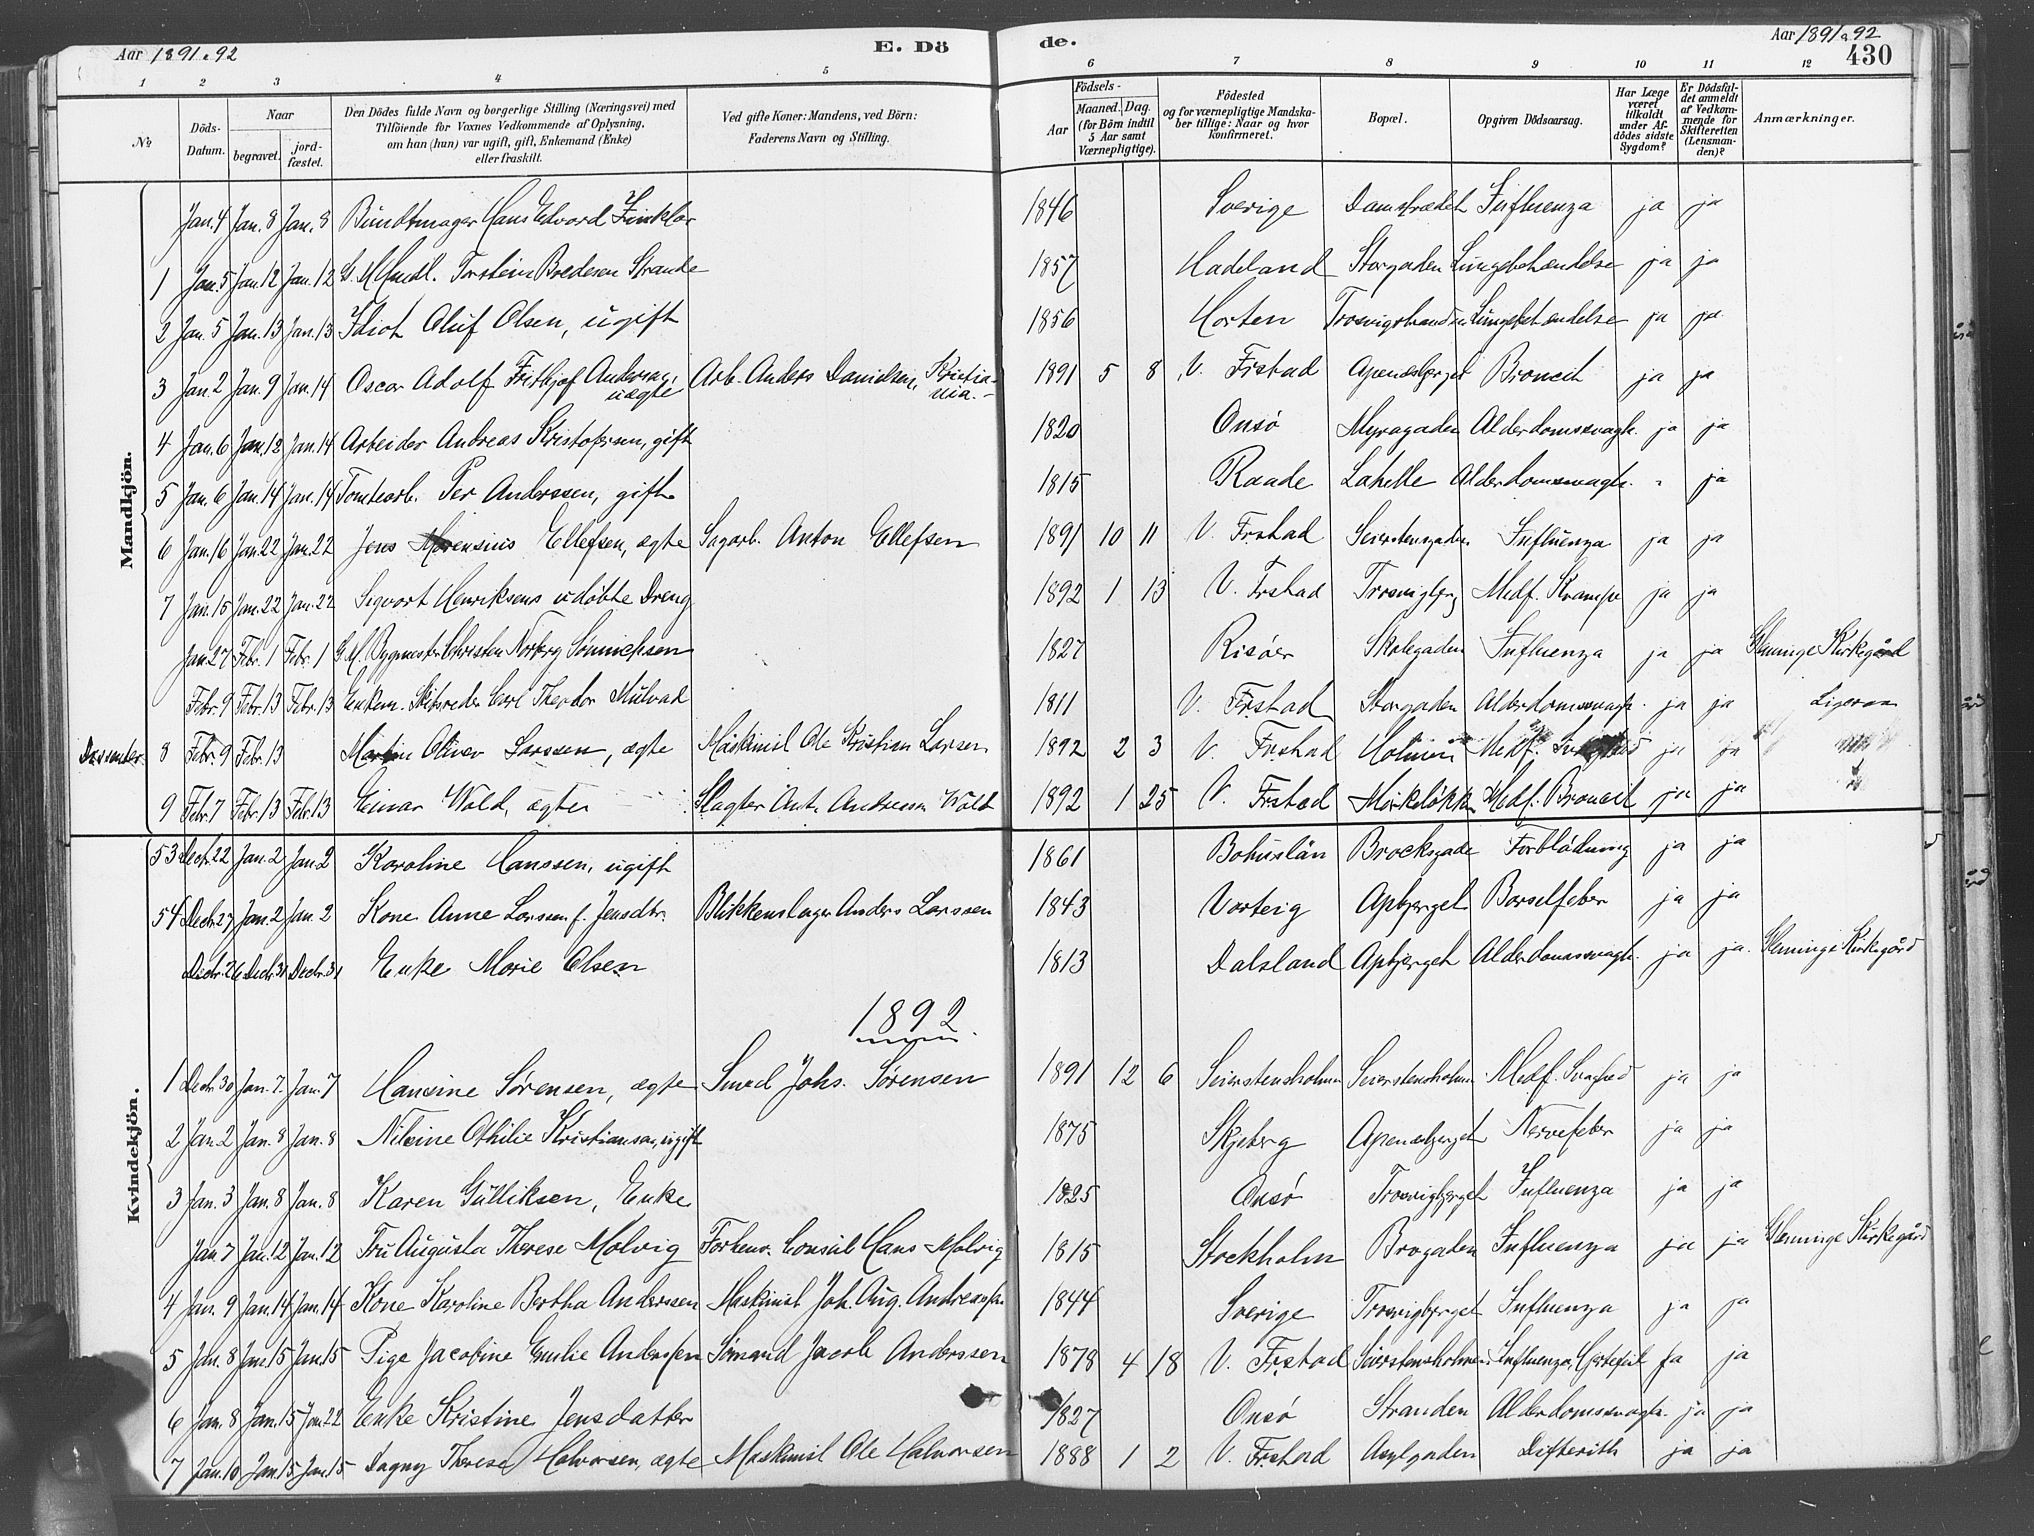 Aar 1891 & 92 E. Dö de. Aar 1891 & 92
430
1 2 3 4 5 6 7 8 9 10 11 12
No. Döds-Datum. Naar begravet. jord-fæstet. Den Dödes fulde Navn og borgerlige Stilling (Næringsvei) med Tilföiende for Voxnes Vedkommende af Oplysning, om han (hun) var ugift, gift, Enkemand (Enke) eller fraskilt. Ved gifte Koner: Mandens, ved Börn: Faderens Navn og Stilling. Födsels- Aar Maaned. Dag. (for Börn indtil 5 Aar samt Værnepligtige). Födested og for værnepligtige Mandskaber tillige: Naar og hvor konfirmeret. Bopæl. Opgiven Dödsaarsag. Har Læge været tilkaldt under Afdödes sidste Sygdom? Er Dödsfaldet anmeldt af Vedkommende for Skifteretten (Lensmanden)? Anmærkninger.
Mandkjön.
Jan. 4 Jan. 8 Jan. 8 Bundtmager Hans Edvard Zinklar 1846 Sverige Damstrædet Influenza ja ja
1 Jan. 5 Jan. 12 Jan. 12 G. M. Hndl. Torstein Bredesen Strande 1857 Hadeland Storgaden Lungebetændelse ja ja
2 Jan. 5 Jan. 13 Jan. 13 Idiot Oluf Olsen, ugift 1856 Horten Trosvigstranden Lungebetændelse ja ja
3 Jan. 2 Jan. 9 Jan. 14 Oscar Adolf Frithjof Andersen, uægte Arb. Anders Danielsen, Kristiania. 1891 5 8 V. Frstad Apenæsberget Bronch ja ja
4 Jan. 6 Jan. 12 Jan. 14 Arbeider Andreas Kristofersen, gift 1820 Onsö Myragaden Alderdomssvagh. ja ja
5 Jan. 6 Jan. 14 Jan. 14 Tomtearb. Per Anderssen, gift 1815 Raade Lahelle Alderdomssvagh. - ja
6 Jan. 16 Jan. 22 Jan. 22 Jens Mørensius Ellefsen, ægte Sagarb. Anton Ellefsen 1891 10 11 V. Frstad Seierstensgaden Influenza ja ja
7 Jan. 15 Jan. 22 Jan. 22 Sigvart Henriksens udöbte Dreng 1892 1 13 V. Frstad Trosvigbjerg Medf. Krampe ja ja
Jan. 27 Febr. 1 Febr. 1 G. M. Bygmester Christen Norberg Sönnichsen 1827 Risöer Skolegaden Influenza ja ja Glemminge Kirkegård
Febr. 9 Febr. 13 Febr. 13 Enkem. Skibsreder Carl Theodor Mulvad 1811 V. Frstad Storgaden Alderdomssvagh. ja ja Ligeraa
8 Febr. 9 Febr. 13 Martin Oliver Larssen, ægte Maskinist Ole Kristian Larsen 1892 2 3 V. Frstad Holmen Medf. ja ja
9 Febr. 7 Febr. 13 Febr. 13 Einar Wold, ægte Slagter Ant. Andreasen Wold 1892 1 25 V. Frstad Mörkelökken Medf. Bronch ja ja
Kvindekjön.
53 Decbr. 22 Jan. 2 Jan. 2 Karoline Hanssen, ugift 1861 Bohuslän Brocksgade Forblödning ja ja
54 Decbr. 27 Jan. 2 Jan. 2 Kone Anne Larssen f. Jensdtr. Blikkenslager Anders Larssen 1843 Varteig Apbjerget Barselfeber ja ja
Decbr. 26 Decbr. 31 Decbr. 31 Enke Marie Olsen 1813 Dalsland Apbjerget Alderdomssvagh. ja ja Glemminge Kirkegård
1892.
1 Decbr. 30 Jan. 7 Jan. 7 Hansine Sørensen, ægte Smed Johs. Sørensen 1891 12 6 Seierstensholmen Seierstensholmen Medf. Svaghed ja ja
2 Jan. 2 Jan. 8 Jan. 8 Nilsine Othilie Kristiansen, ugift 1875 Skjeberg Apenæsberget Nervefeber ja ja
3 Jan. 3 Jan. 8 Jan. 8 Karen Gulliksen, Enke 1825 Onsö Trosvigbjerget Influenza ja ja
Jan. 7 Jan. 12 Jan. 12 Fru Augusta Therese Molvig Forhenv. Consul Hans Molvig 1815 Stockholm Brogaden Influenza ja ja Glemminge Kirkegård
4 Jan. 9 Jan. 14 Jan. 14 Kone Karoline Bertha Anderssen Maskinist Joh. Aug. Andreassen 1844 Sverige Trosvigbjerget Influenza ja ja
5 Jan. 8 Jan. 15 Jan. 15 Pige Jacobine Emilie Anderssen Sömand Jacob Anderssen 1878 4 18 V. Frstad Seierstensholmen Influenza, Hjertefeil ja ja
6 Jan. 8 Jan. 15 Jan. 22 Enke Kristine Jensdatter 1827 Onsö Stranden Alderdomssvagh. ja ja
7 Jan. 10 Jan. 15 Jan. 15 Dagny Therese Halvorsen, ægte Maskinist Ole Halvorsen 1888 1 2 V. Frstad Asylgaden Difterith ja ja